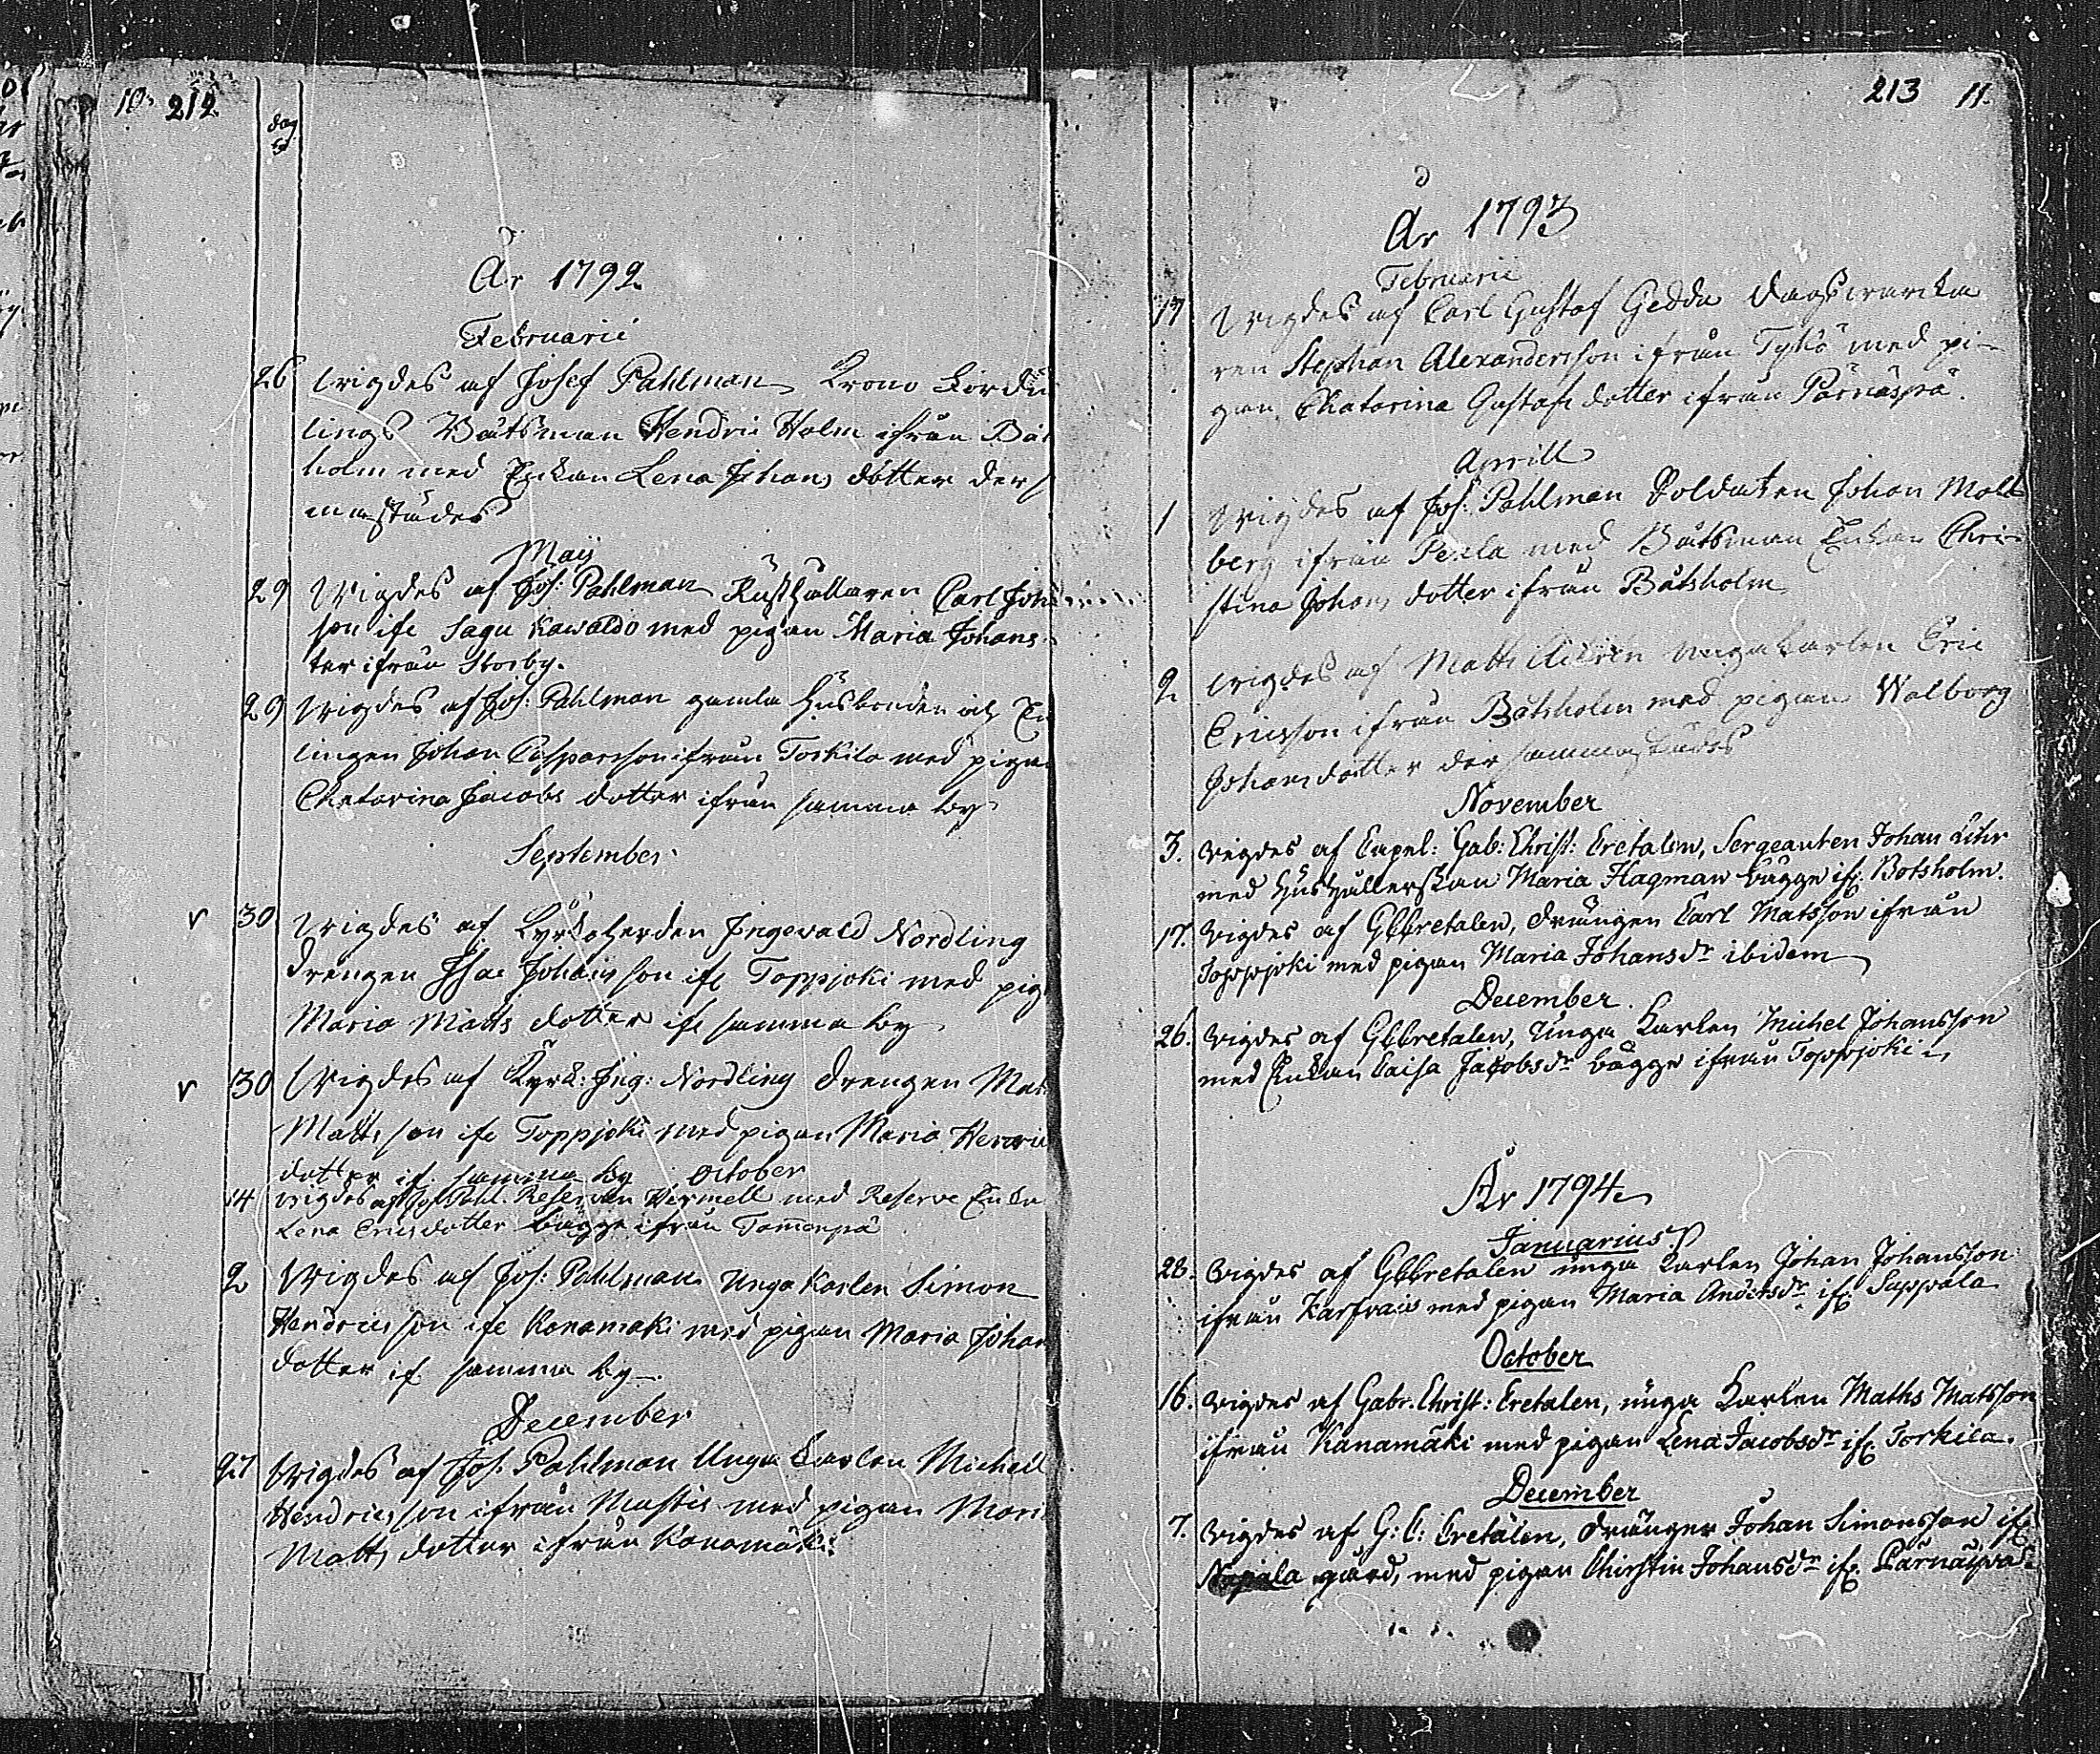 10. 212
dag
År 1792
Februarii
26 Wigdes af Josef Pahlman Krono
lings Båtsman Hendric Holm ifrån Båt
holm med Enkan Lena Johans dotter der
mastädes
Maij
29 Wigdes af Jos: Pahlman Rusthållaren Carl Joh
son ifr Sagu Kawaldo med pigan Maria Johans
ter ifrån Storby.
29 Wigdes af Jos: Pahlman gamla Husbonden och En
lingen Johan Casparsson ifrån Torkila med piga
Chatarina Jacobs dotter ifrån samma by
September
v 30 Wigdes af Kyrkoherden Ingewald Nordling
Drengen Isac Johansson ifr Toppjoki med pig
Maria Matts dotter ifr samma by
v 30 Wigdes af Kyrk: Ing: Nordling Drengen Mat
Matts son ifr Toppjoki med pigan Maria Henric
dotter if. samma by October
14 Wigdes af Jos Pahl. Reserven Vermell med Reserve Enka
Lena Erics dotter bägge ifrån Tammenpä
2 Wigdes af Jos: Pahlman Unga Karlen Simon
Hendricsson ifr Konamäki med pigan Maria Johan
dotter if. samma by
December
27 Wigdes af Jos. Pahlman Unga Karlen Michell
Hendricsson ifrån Mustis med pigan Mari
Matts dotter ifrån Konamäki
213 11.
År 1793
Februarii
17 Wigdes af Carl Gustaf Gedda Dagswarka
ren Stephan Alexandersson ifrån Tykö med pi-
gan Chatarina Gustafs dotter ifrån Pärnäspä.
Aprill
1 Wigdes af Jos: Pahlman Soldaten Johan Malt
berg ifrån Perla med Båtsman Enkan Chri-
stina Johans dotter ifrån Båtsholm
2 Wigdes af Matth: unga karlen Eric
Ericsson ifrån Båtsholm med pigan Walborg
Johans dotter der sammastädes
November
3. Wigdes af Capel: Gab: Christ: Cretalen, Sergeanten Johan Lihr
med Hushållerskan Maria Hagman bägge ifr. Botsholm.
17. Wigdes af GCCretalen, Drängen Carl Matsson ifrån
Toppjoki med pigan Maria Johansdr ibidem
December.
26. Wigdes af GCCretalen, Unga Karlen Michel Johansson
med Enkan Caisa Jacobsdr bägge ifrån Toppjoki
År 1794
Januarius
28. Wigdes af GCCretalen unga Karlen Johan Johansson
ifrån Karfvais med pigan Maria Andersdr ifr. Sappala
October
16. Wigdes af Gabr. Christ: Cretalen, unga Karlen Maths Matsson
ifrån Kanamäki med pigan Lena Jacobsdr ifr. Torkila.
December
7. Wigdes af G: C: Cretalen, Drängen Johan Simonsson ifr
gård, med pigan Chirstin Johansdr ifr. Pärnäspä